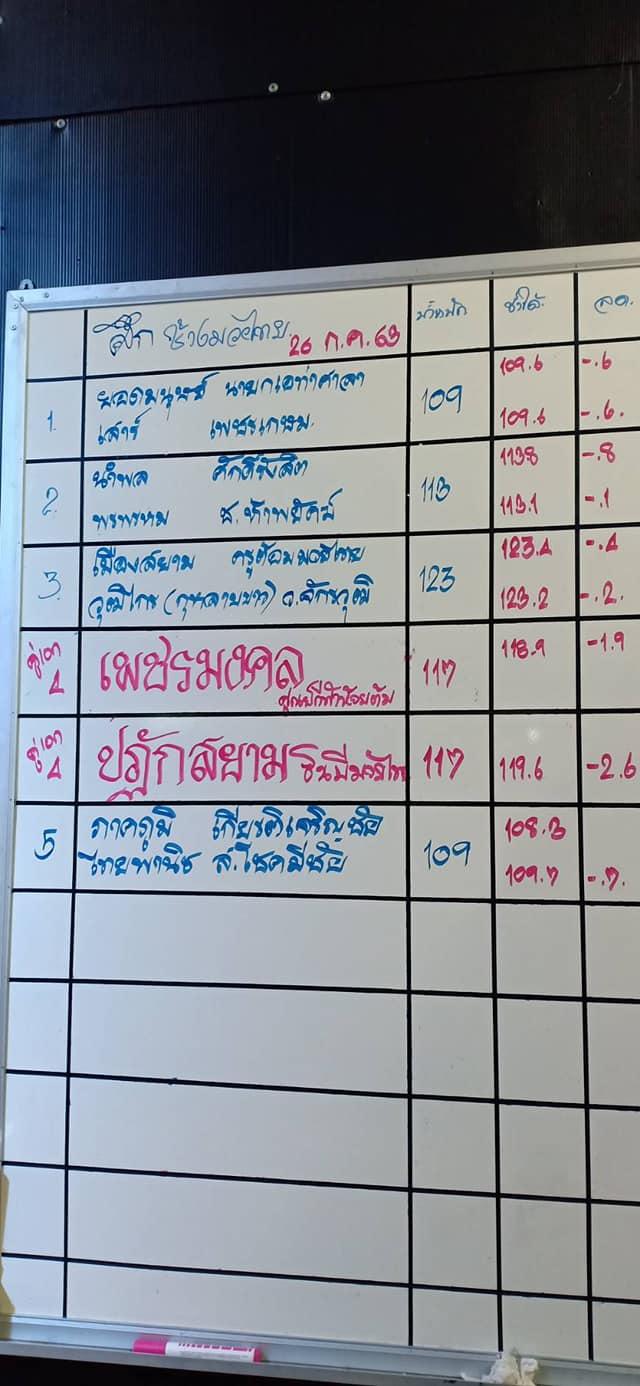 ศึก ช้างมวยไทย 26 ก.ค. 63 น้ำหนัก ชั่งได้ ลด.
1. ยอดมนุษย์ นายกเอท่าศาลา 109 109.6 -.6
เสาร์ เพชรเกษม 109.6 -.6.
2. นำพล ศักดิ์รังสิต 113 113.8 -.8
พรพรหม 113.1 -.1
3. เมืองสยาม ครูต้อมมวยไทย 123 123.4 -.4
วุฒิไกร 123.2 -.2.
คู่เอก 4 เพชรมงคล 117 118.9 -1.9
คู่เอก 4 ปฏักสยาม 117 119.6 -2.6
5 ภาคภูมิ เกียรติเจริญชัย 109 108.3
ไทยพานิช ส.โชคมีชัย 109.7 -.7.